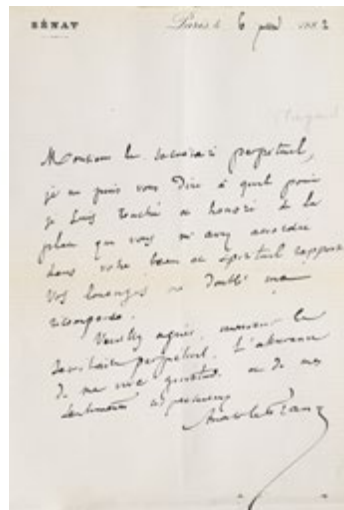 SÉNAT
Paris le 6 1882
Monsieur le secrétaire perpétuel,
je ne puis vous dire à quel point
je suis touché et honoré de la
place que vous m'avez accordée
dans votre beau et spirituel rapport
Vos louanges ont doublé ma
récompense.
Veuillez agréer, monsieur le
secrétaire perpétuel, l'assurance
de ma vive gratitude et de mes
sentiments
Anatole France